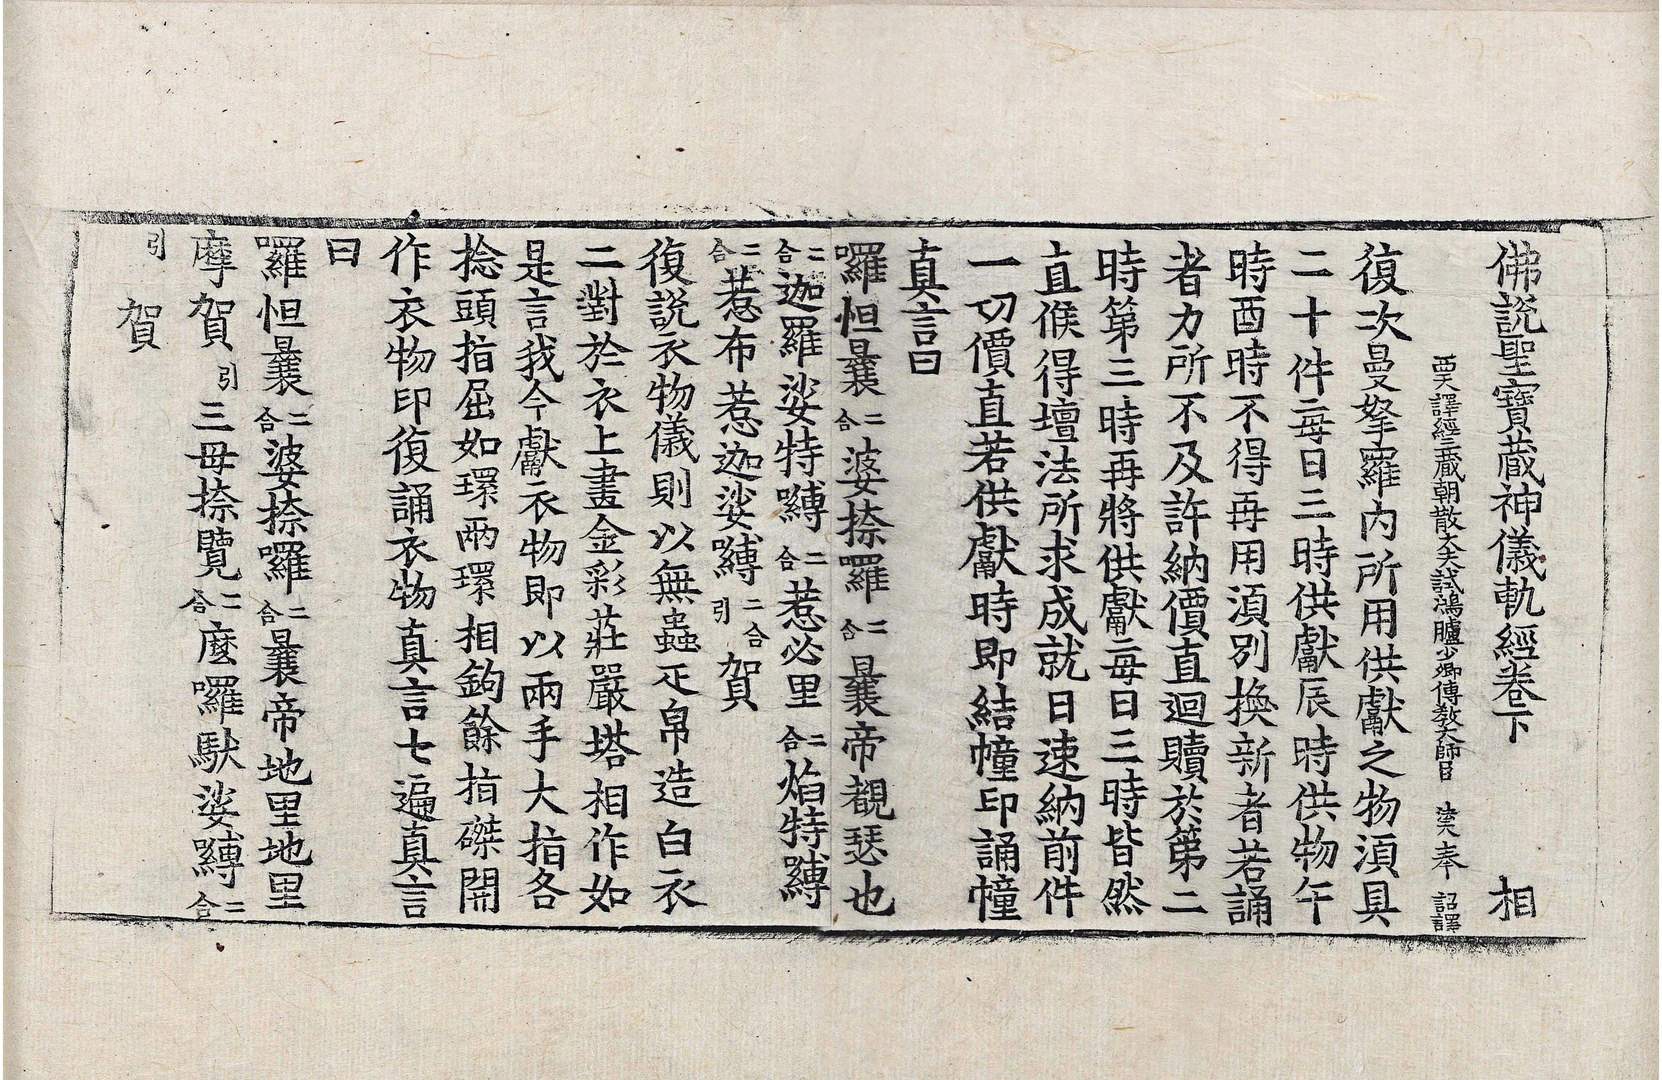 佛說聖寶藏神儀軌經卷下 相
西天譯經三藏朝散大夫試鴻臚少卿傳教大師臣 法天奉 詔譯
復次曼拏羅內所用供獻之物湏具
二十件每日三時供獻辰時供物午
時酉時不得再用湏別換新者若誦
者力所不及許納價直迴贖於第二
時第三時再將供獻每日三時皆然
直候得壇法所求成就日速納前件
一切價直若供獻時即結幢印誦幢
真言曰
囉怛曩二合婆捺囉二合曩帝覩瑟也
二合迦羅娑特嚩二合惹必里二合焰特嚩
二合惹布惹迦娑嚩二合引賀
復說衣物儀則以無蟲疋帛造白衣
二對於衣上畫金彩莊嚴塔相作如
是言我今獻衣物即以兩手大指各
捻頭指屈如環兩環相鉤餘指磔開
作衣物印復誦衣物真言七遍真言
曰
囉怛曩二合婆捺囉二合曩帝地里地里
摩賀引三母捺覽二合麼囉馱娑嚩二合
引賀